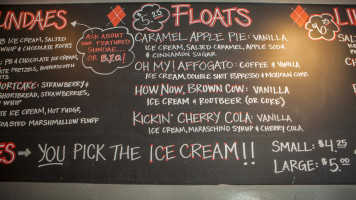 UNDAES
PB ICE CREAM, SALTED
WHIP & CHOCOLATE ROCKS
PB & CHOCOLATE ICE CREAM,
PRETZELS, BUTTERSCOTCH
SHORTCAKE: STRAWBERRY &
SHORTBREAD, STRAWBERRIES,
WHIP
ICE CREAM, HOT FUDGE,
TOASTED MARSHMALLOW FLUFF
ASK ABOUT
OUR FEATURED
SUNDAE...
OR B.Y.O!
5.25 FLOATS
CARAMEL APPLE PIE: VANILLA
ICE CREAM, SALTED CARAMEL, APPLE SODA
& CINNAMON SUGAR
OH MY! AFFOGATO: COFFEE & VANILLA
ICE CREAM, DOUBLE SHOT ESPRESSO & MEXICAN COKE
HOW NOW, BROWN COW: VANILLA
ICE CREAM & ROOTBEER (OR COKE)
KICKIN' CHERRY COLA: VANILLA
ICE CREAM, MARASCHINO SYRUP & CHERRY COLA
LI
ES → YOU PICK THE ICE CREAM!!
SMALL: $4.25
LARGE: $5.00